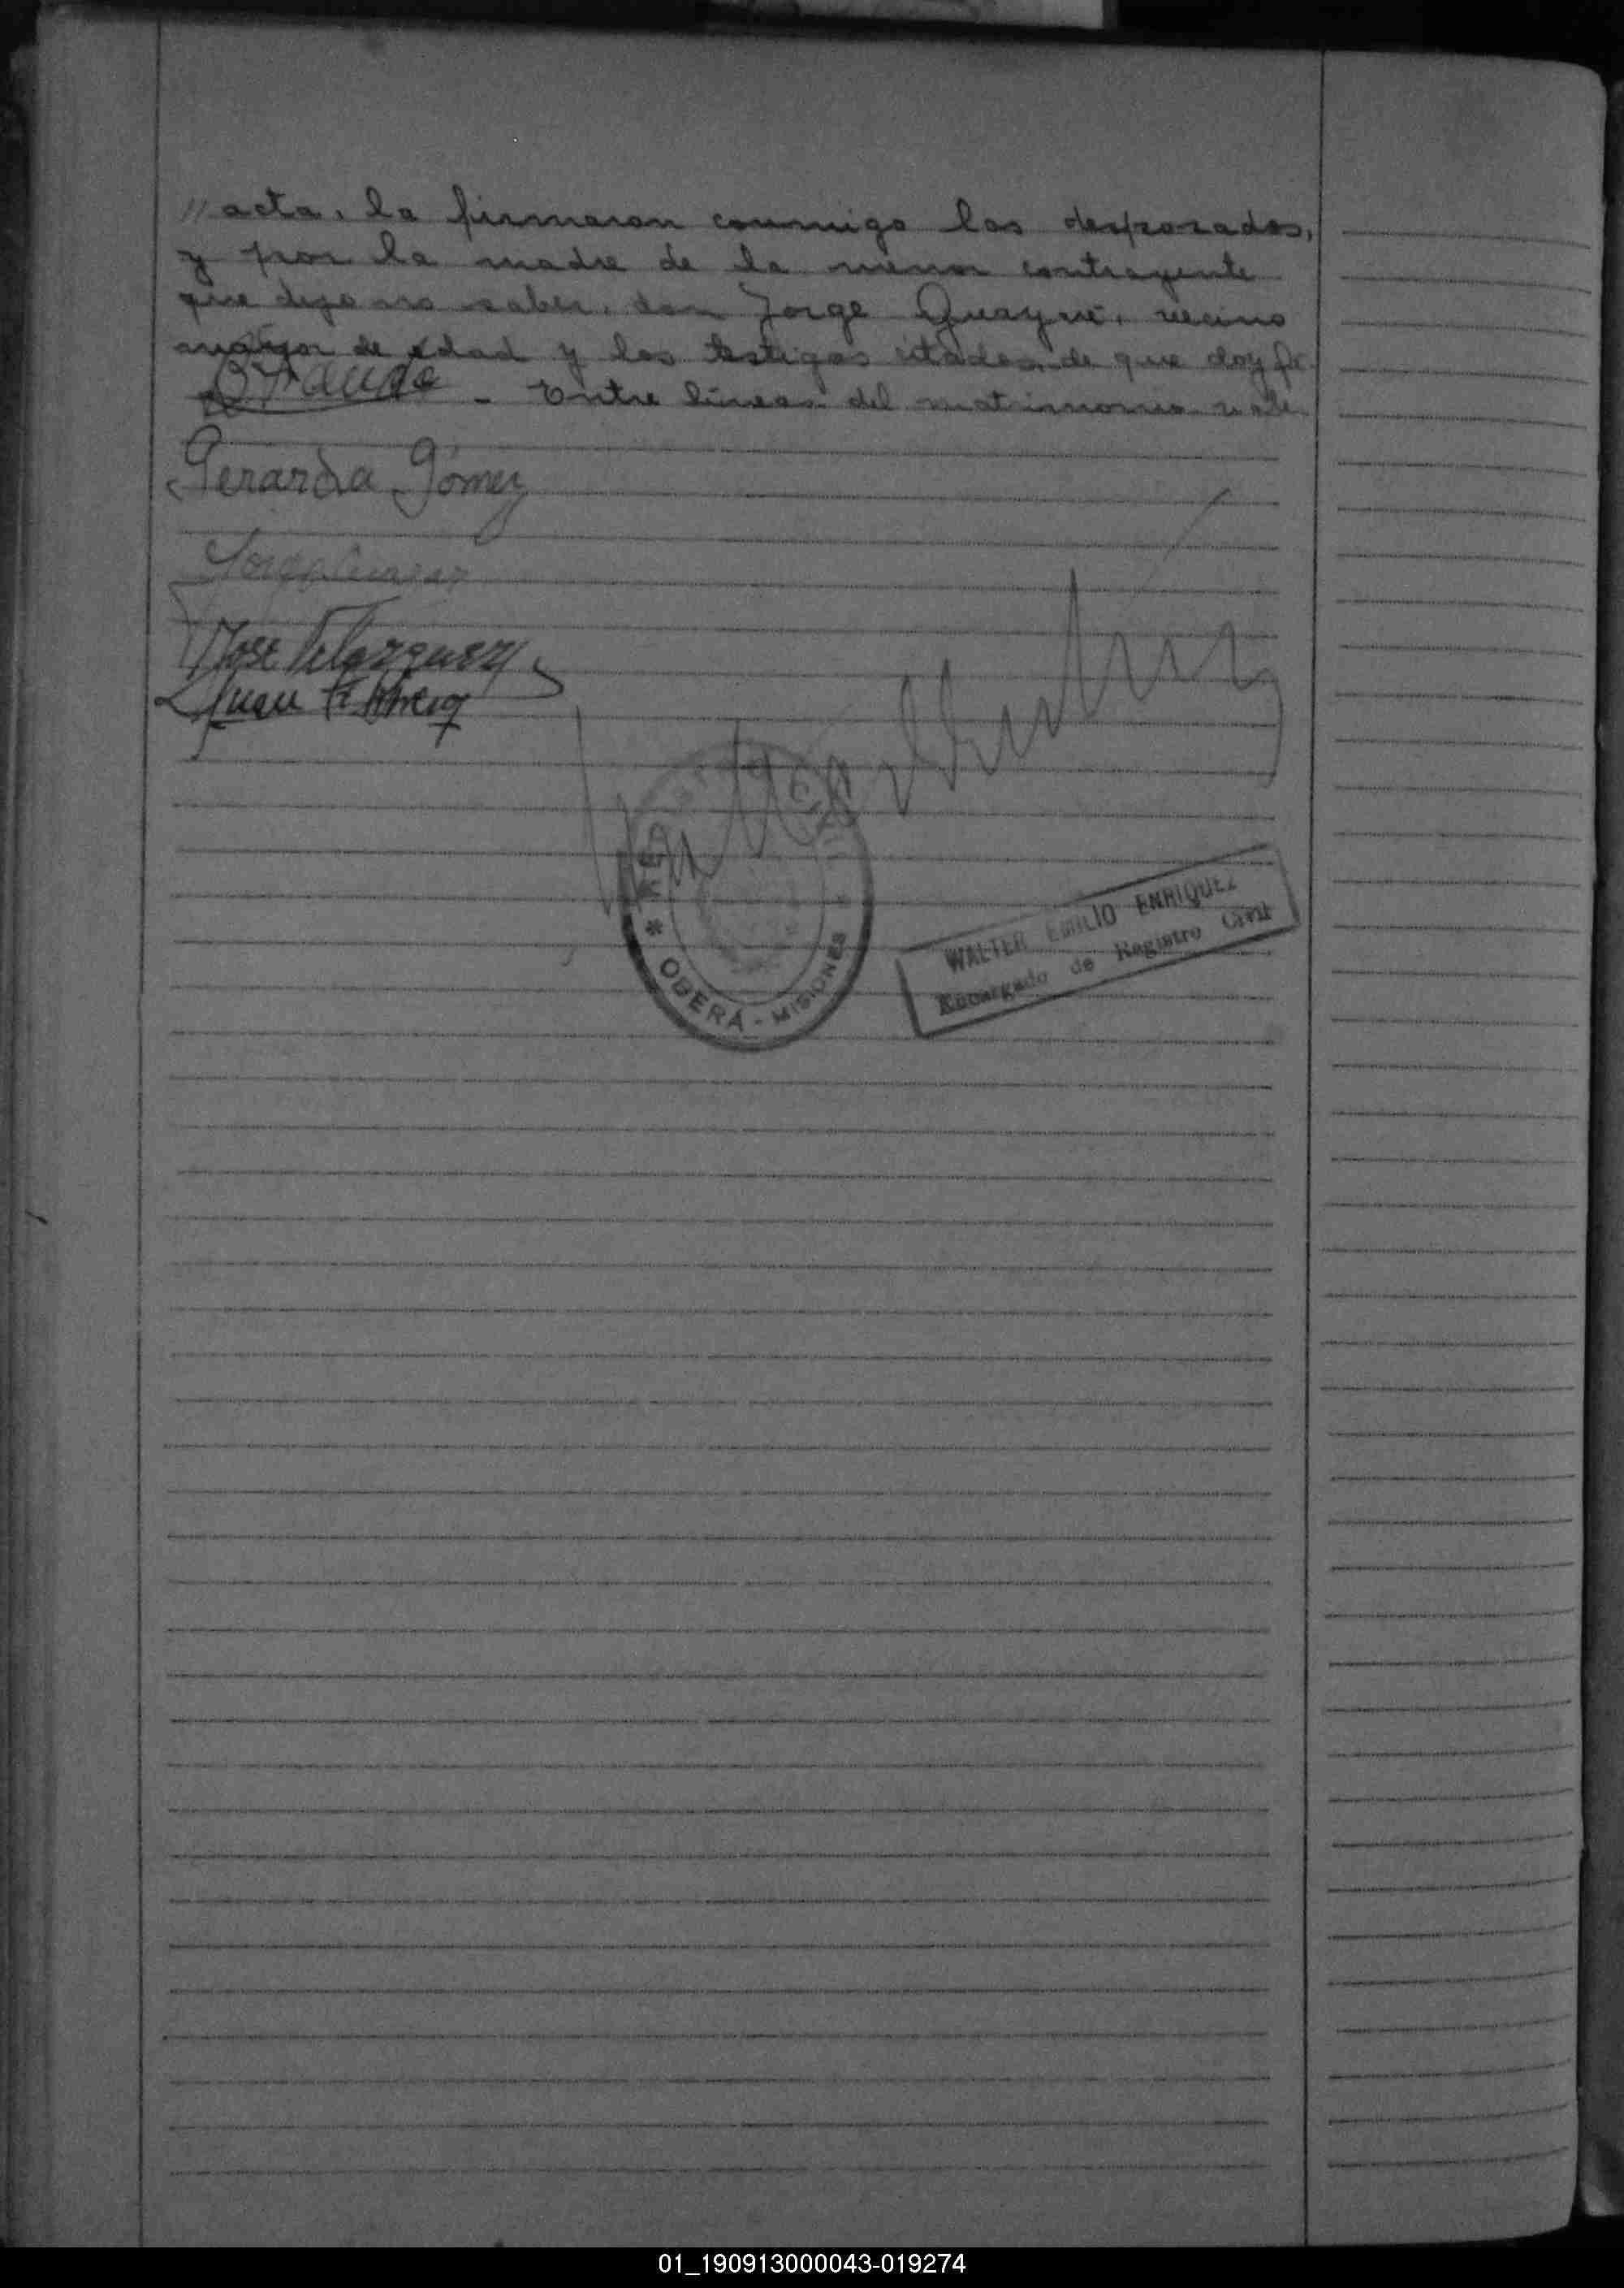 // acta, la firmaron conmigo los desposados,
y por la madre de la menor contrayente
que dijo no saber, don Jorge Quayné, vecino
mayor de edad y los testigos citados de que doy fe.
- Entre lineas del matrimonio vale
Gerarda Gómez
Jorge
Jose Velazquez
Juan
OBERÁ - MISIONES
WALTER EMILIO ENRIQUEZ
Encargado de Registro Civil
01_190913000043-019274